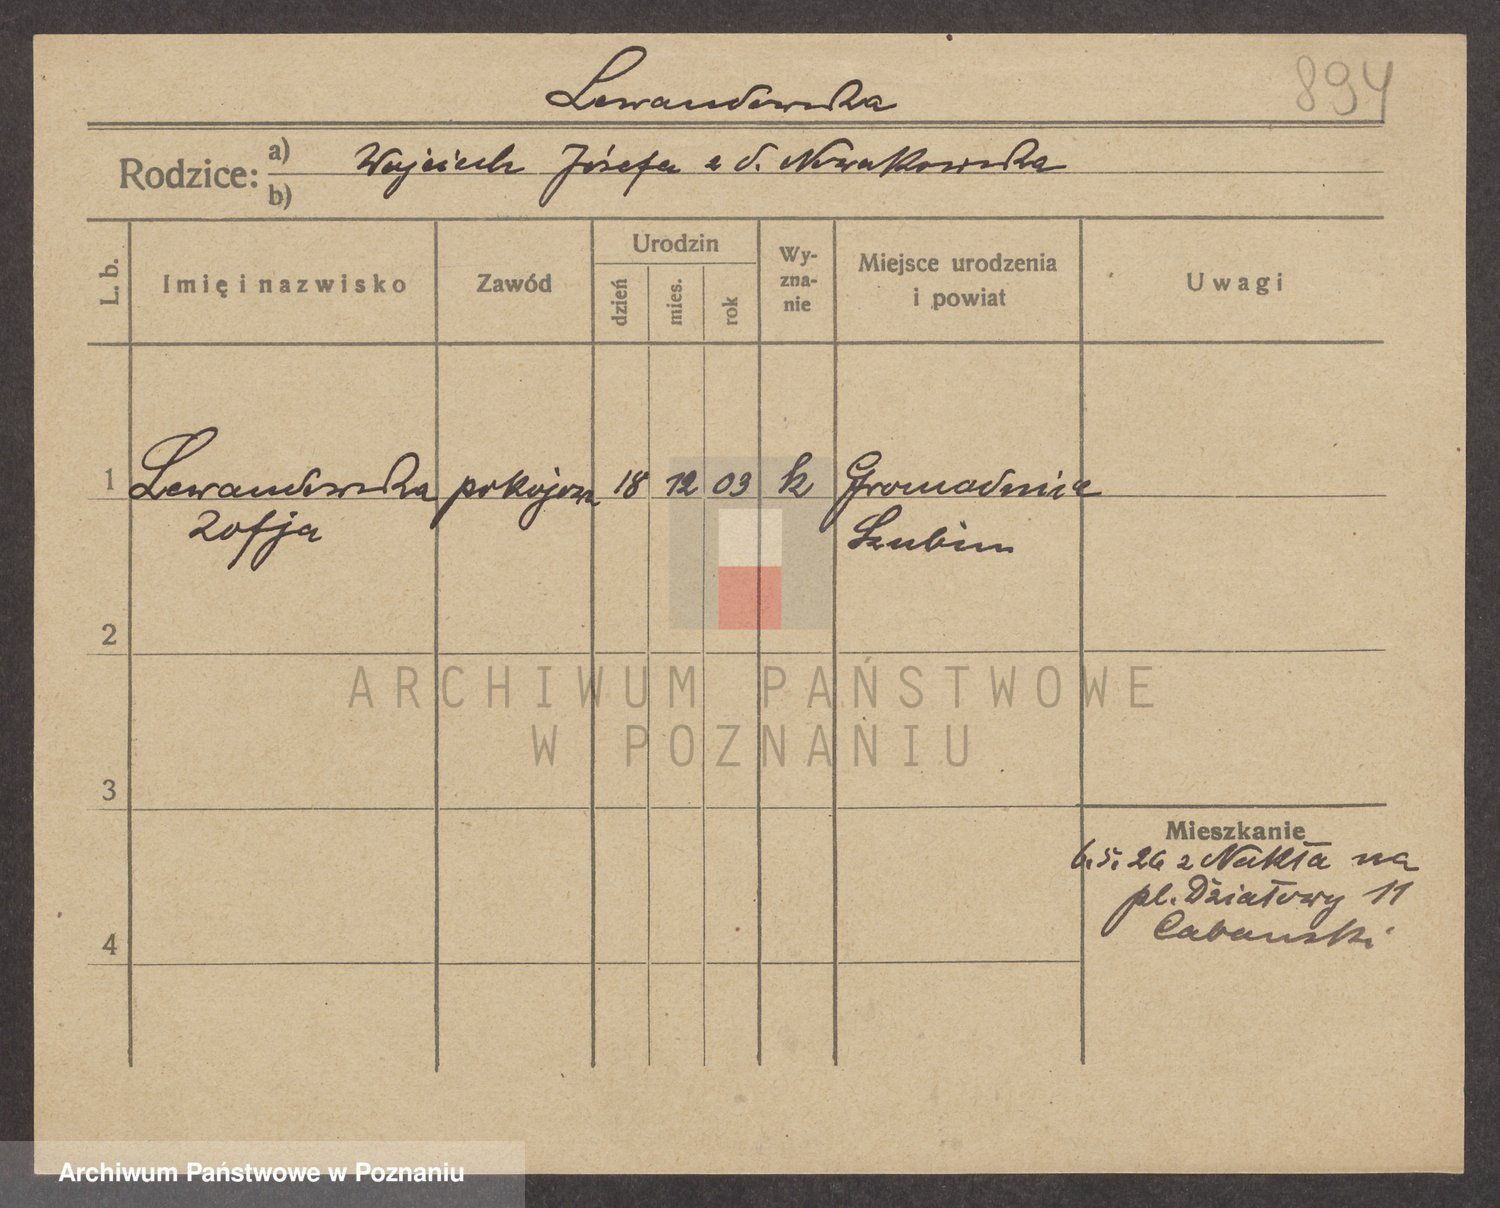 894
Lewandowska
Rodzice: a) b) Wojciech Józefa z d. Nowakowska
L. b.
Imię i nazwisko
Zawód
Urodzin
dzień
mies.
rok
Wy-
zna-
nie
Miejsce urodzenia
i powiat
Uwagi
1 Lewandowska pokojowa 18 12 03 k Gromadnica
Zofja Szubin
2
3
4
Mieszkanie
6.5.26 z Nakła na
pl. Działowy 11
Cabanski
ARCHIWUM PAŃSTWOWE
W POZNANIU
Archiwum Państwowe w Poznaniu